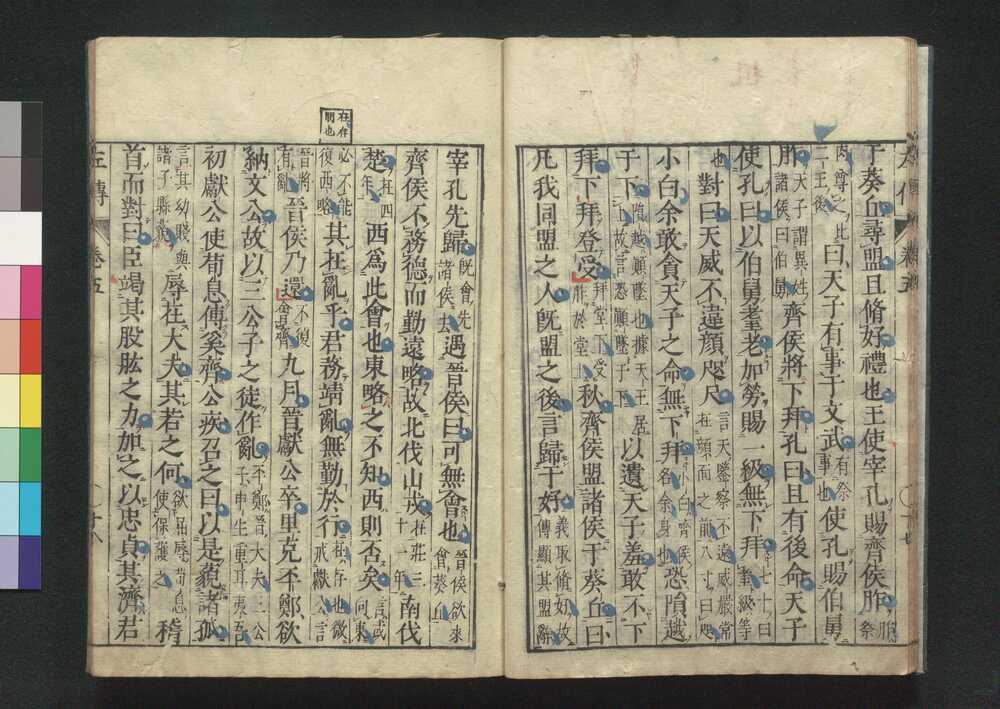 于葵丘尋盟且脩好禮也王使宰孔賜齊侯胙胙祭
肉尊之比二王後曰天子有事于文武有祭事也使孔賜伯舅
胙天子謂異姓諸侯曰伯舅齊侯將下拜孔曰且有後命天子
使孔曰以伯舅耋老加勞賜一級無下拜七十曰耋級等
也對曰天威不違顏咫尺言天鑒察不遠威嚴常在顏面之前八寸曰咫
小白余敢貪天子之命無下拜小白齊侯名余身也恐隕越
于下隕越顛墜也據天王居上故言恐顛墜于下以遺天子羞敢不下
拜下拜登受拜堂下受胙於堂秋齊侯盟諸侯于葵丘曰
凡我同盟之人既盟之後言歸于好義取脩好故傳顯其盟辭
在存間也
宰孔先歸既會先諸侯去遇晉侯曰可無會也晉侯欲來會葵丘
齊侯不務德而勤遠略故北伐山戎在莊三十一年南伐
楚在四年西為此會也東略之不知西則否矣言或向東
必不能復西略其在亂乎君務靖亂無勤於行在存也微戒獻公言
晉將有亂晉侯乃還不復會齊九月晉獻公卒里克丕鄭欲
納文公故以三公子之徒作亂丕鄭晉大夫三公子申生重耳夷吾
初獻公使荀息傅奚齊公疾召之曰以是藐諸孤
言其幼賤與諸子縣藐辱在大夫其若之何欲屈辱荀息使保護之稽
首而對曰臣竭其股肱之力加之以忠貞其濟君
左傳 卷五 十八